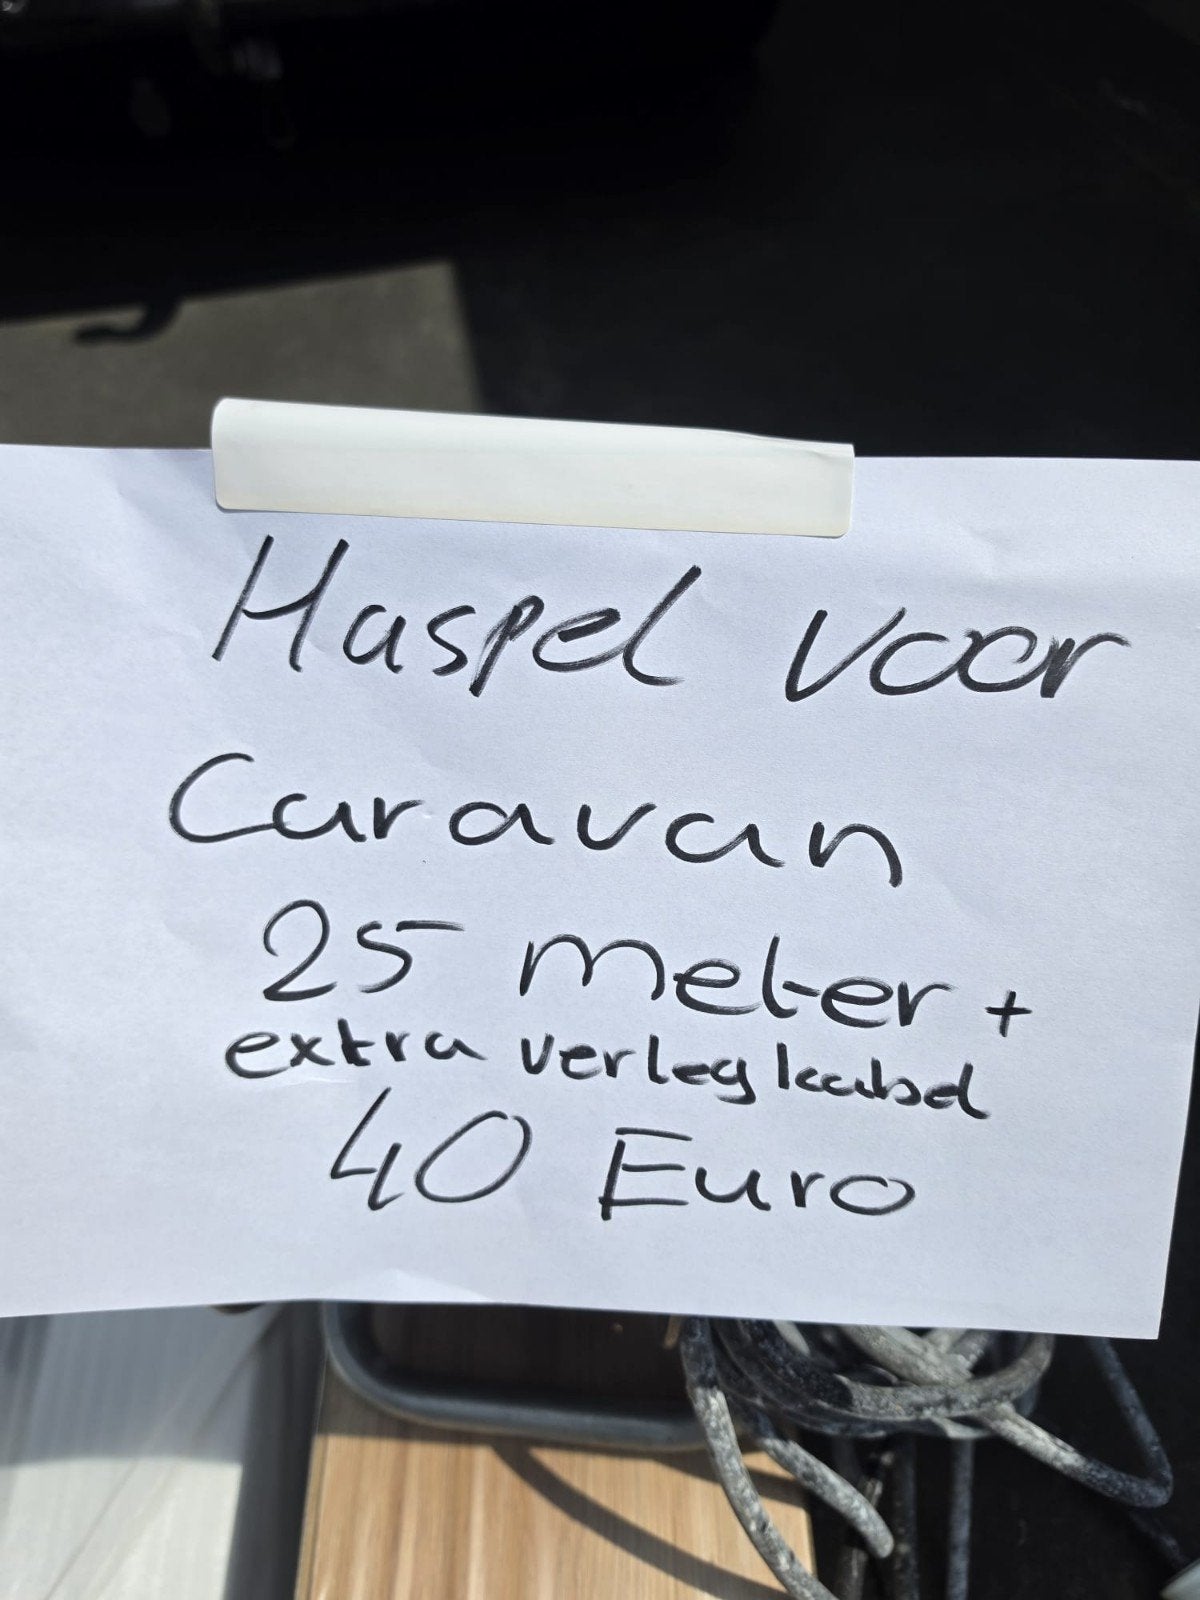 Haspel voor
Caravan
25 meter +
extra verlegkabel
40 Euro